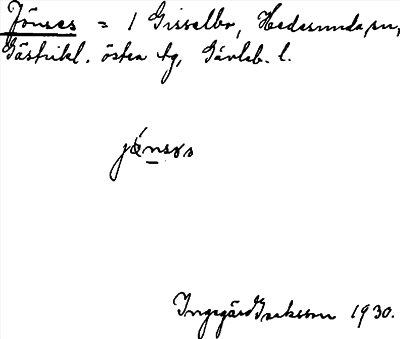 Jönses = 1 Gisselbo, Hedesunda sn,
Gästrikl. östra tg, Gävleb. l.
jǿnsəs
Ingegärd Isaksson 1930.